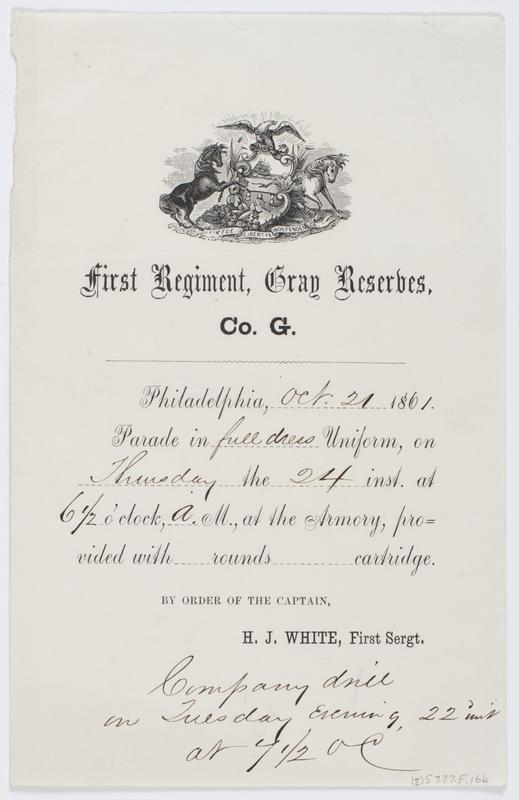 VIRTUE LIBERTY & INDEPENDENCE
First Regiment, Gray Reserves,
Co. G.
Philadelphia, Oct. 21 1861.
Parade in full dress Uniform, on
Thursday the 24 inst. at
6 1/2 o'clock, A. M., at the Armory, pro=
vided with rounds cartridge.
BY ORDER OF THE CAPTAIN,
H. J. WHITE, First Sergt.
Company drill
on Tuesday Evening, 22d inst
at 7 1/2 OC
(2)5777.F.166